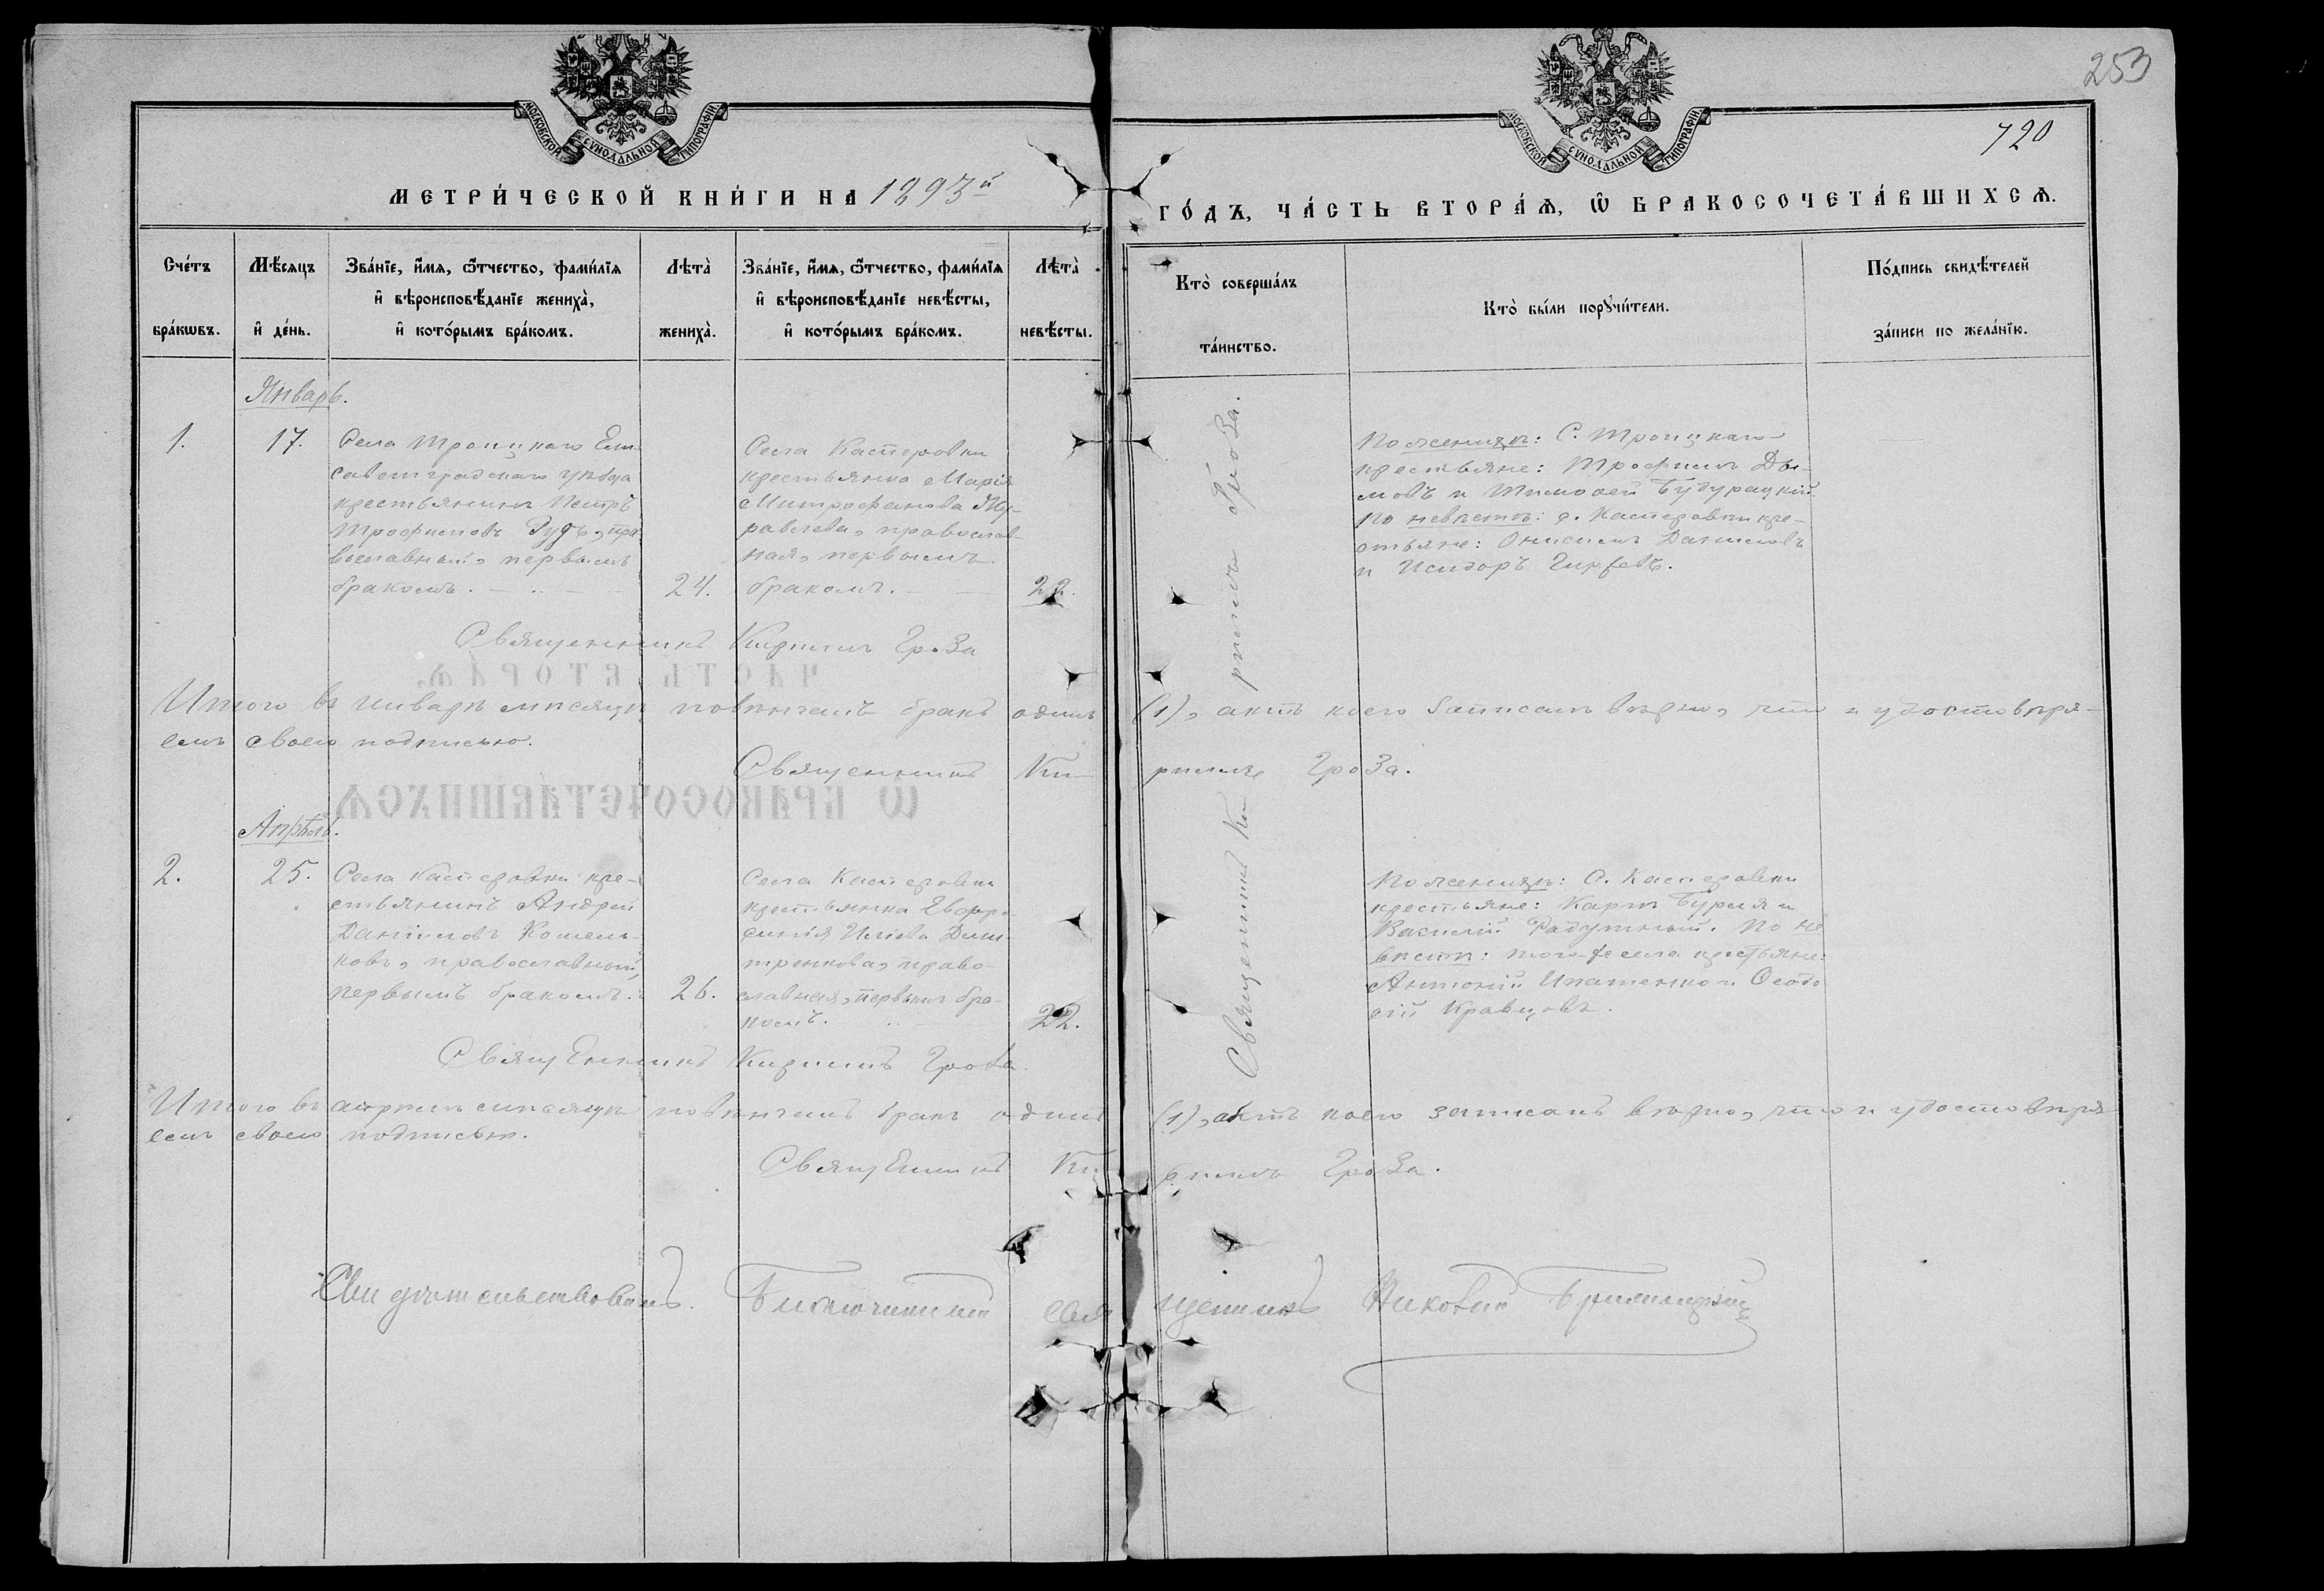 253
720
МОСКОВСКОЙ СУНОДАЛЬНОЙ ТИПОГРАФІИ.
МОСКОВСКОЙ СУНОДАЛЬНОЙ ТИПОГРАФІИ.
МЕТРИ́ЧЕСКОЙ КНИ́ГИ НА 1893й
ГО́ДЪ, ЧА́СТЬ ВТОРА́Ѧ, Ѡ҆ БРАКОСОЧЕТА́ВШИХСѦ.
Сче́тъ
бра́кѡвъ.
Мѣ́сяцъ
и҆ де́нь.
Зва́нїе, и҆́мѧ, ѻ҆́тчество, фами́лїѧ
и҆ вѣроисповѣ́данїе жениха̀,
и҆ кото́рымъ бра́комъ.
Лѣта̀
жениха̀.
Зва́нїе, и҆́мѧ, ѻ҆́тчество, фами́лїѧ
и҆ вѣроисповѣ́данїе невѣ́сты,
и҆ кото́рымъ бра́комъ.
Лѣта̀
невѣ́сты.
Кто̀ соверша́лъ
та́инство.
Кто̀ бы́ли порꙋчи́тели.
По́дпись свидѣ́телей
за́писи по жела́нїю.
Январь.
1.
17.
Села Троицкаго Ели-
саветградскаго уѣзда
крестьянинъ Петръ
Трофимовъ Рудъ, пра
вославный, первымъ
бракомъ.
24.
Села Касперовки
крестьянка Марія
Митрофанова Жу-
равлева, православ-
ная, первымъ
бракомъ.
22.
Священникъ Кириллъ Гроза.
По женихѣ: С. Троицкаго
крестьяне: Трофимъ Ды-
мовъ и Тимофей
По невѣстѣ: с. Касперовки кре-
стьяне: Онисимъ Даниловъ
и Исидоръ
Священникъ Кириллъ Гроза
Итого въ январѣ мѣсяцѣ повѣнчанъ бракъ одинъ (1), актъ коего записанъ вѣрно, что и удостовѣря-
емъ своею подписью.
Священникъ Кириллъ Гроза.
Апрѣль.
2.
25.
Села Касперовки кре-
стьянинъ Андрей
Даниловъ Кошель-
ковъ, православный,
первымъ бракомъ.
26.
Села Касперовки
крестьянка Евфро-
синія Иліева Дми-
тренкова, право-
славная, первымъ бра-
комъ.
22.
По женихѣ: С. Касперовки
крестьяне: Карпъ Бурля и
Василій Радутный. По не
вѣстѣ: того же села крестьяне:
Антоній Ипатенко и Ѳеодо
сій Кравцовъ.
Священникъ Кириллъ Гроза.
Итого въ апрѣлѣ мѣсяцѣ повѣнчанъ бракъ одинъ (1), актъ коего записанъ вѣрно, что и удостовѣря
емъ своею подписью.
Священникъ Кириллъ Гроза.
Свидѣтельствовалъ. Благочинный Священникъ